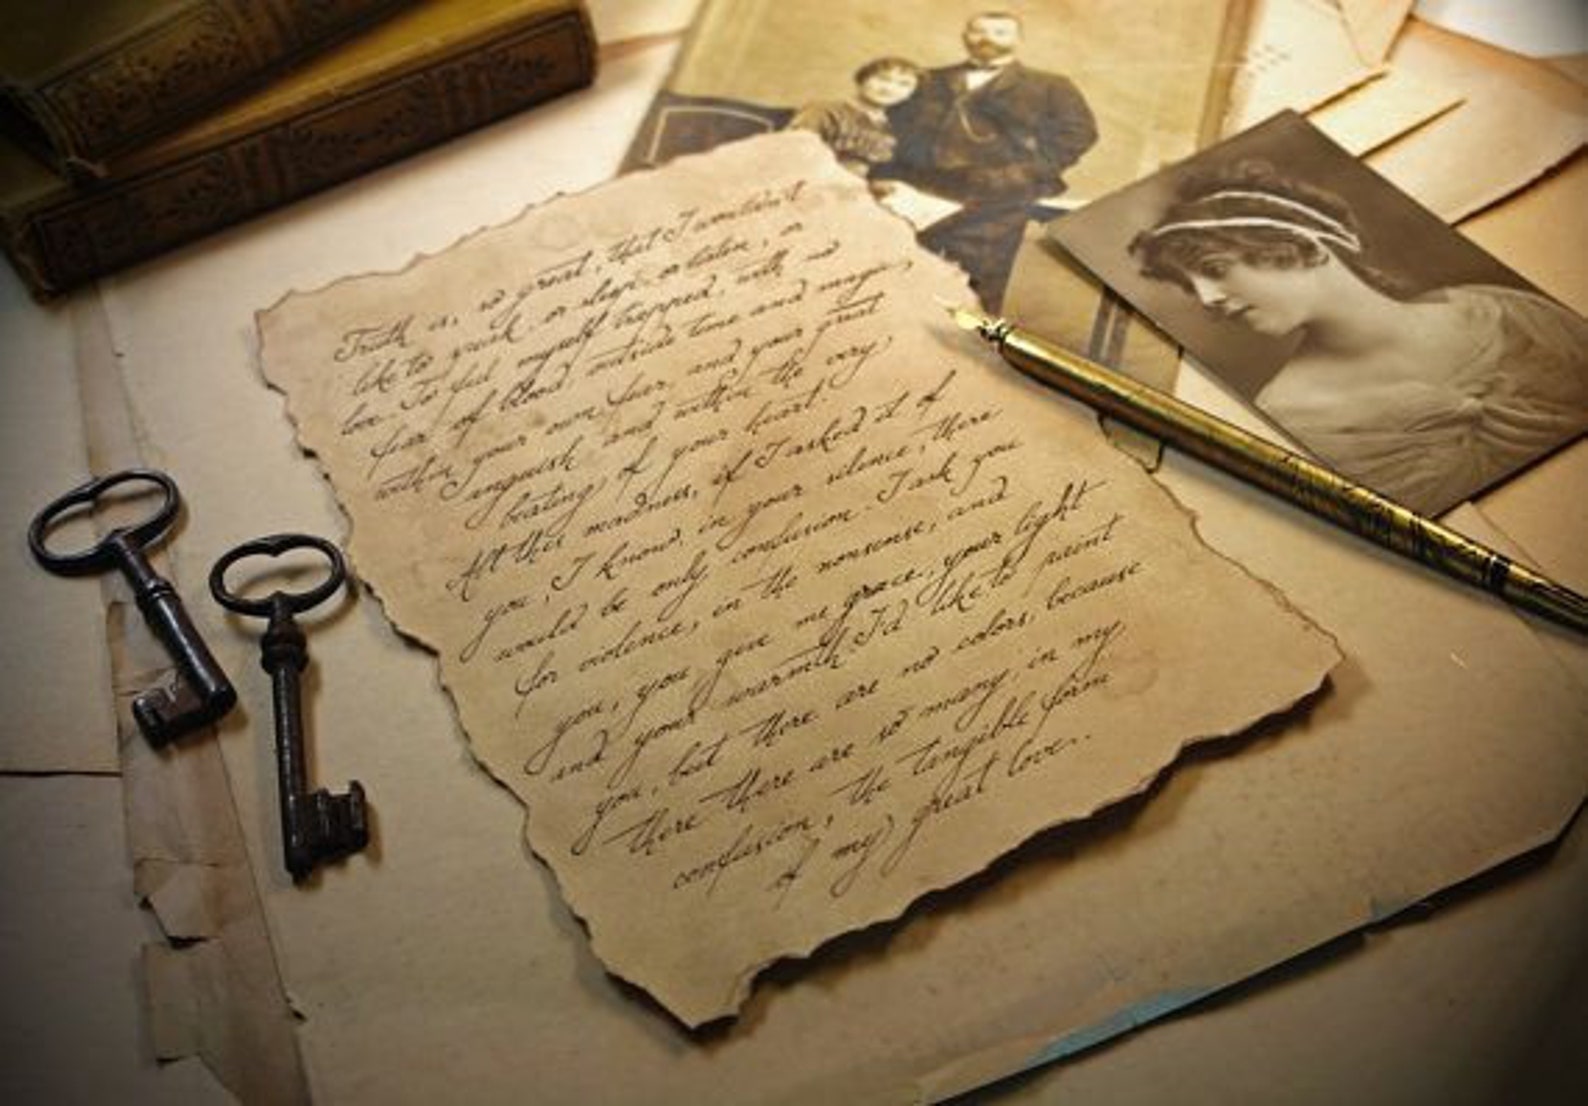 Truth is, so great, that I wouldn't
like to speak, or sleep, or listen, or
love. To feel myself trapped, with no
fear of blood, outside time and magic,
within your own fear, and your great
anguish, and within the very
beating of your heart.
All this madness, if I asked it of
you, I know, in your silence, there
would be only confusion. I ask you
for violence, in the nonsense, and
you, you give me grace, your light
and your warmth. I'd like to paint
you, but there are no colors, because
there there are so many, in my
confusion, the tangible form
of my great love..